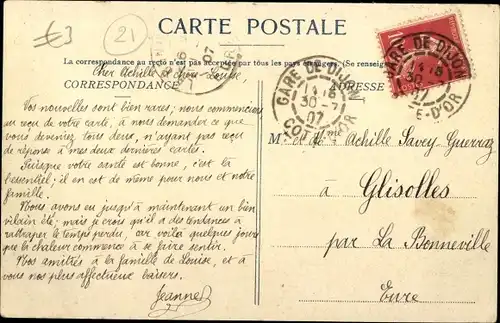 €3
21
CARTE POSTALE
La correspondance au recto n'est pas acceptée par tous les pays étrangers. (Se renseigner
CORRESPONDANCE
ADRESSE
Cher Achille et chère Louise,
Vos nouvelles sont bien rares; nous commencions
au reçu de votre carte, à nous demander ce que
vous deveniez tous deux, n'ayant pas reçu
de réponse à mes deux dernières cartes.
Puisque votre santé est bonne, c'est là
l'essentiel; il en est de même pour nous et notre
famille.
Nous avons eu jusqu'à maintenant un bien
vilain été; mais je crois qu'il a des tendances à
rattraper le temps perdu, car voilà quelques jours
que la chaleur commence à se faire sentir.
Nos amitiés à la famille de Louise, et à
vous nos plus affectueux baisers.
Jeanne
GARE DE DIJON
30 -7
07
COTE-D'OR
GARE DE DIJON
30
E-D'OR
10
M. et Mme Achille Savey Guerraz
à
Glisolles
par La Bonneville
Eure